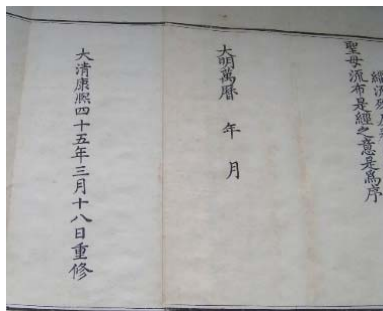 聖母流布是經之意是爲序
大明萬曆 年 月
大清康熙四十五年三月十八日重修